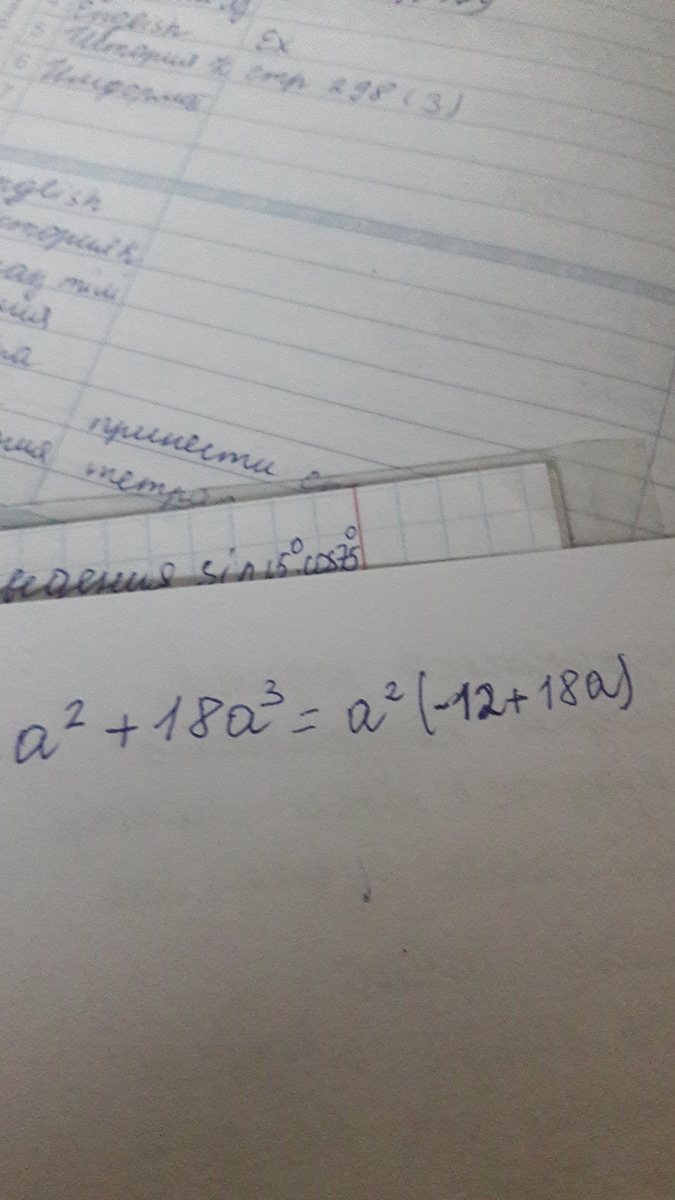 English Ex
5 История К стр 298 (3)
6 Информат
7
nglish
стория К
ния
принести
ния тетра
ведения sin 15° cos75°
a² + 18a³ = a² (-12 + 18a)